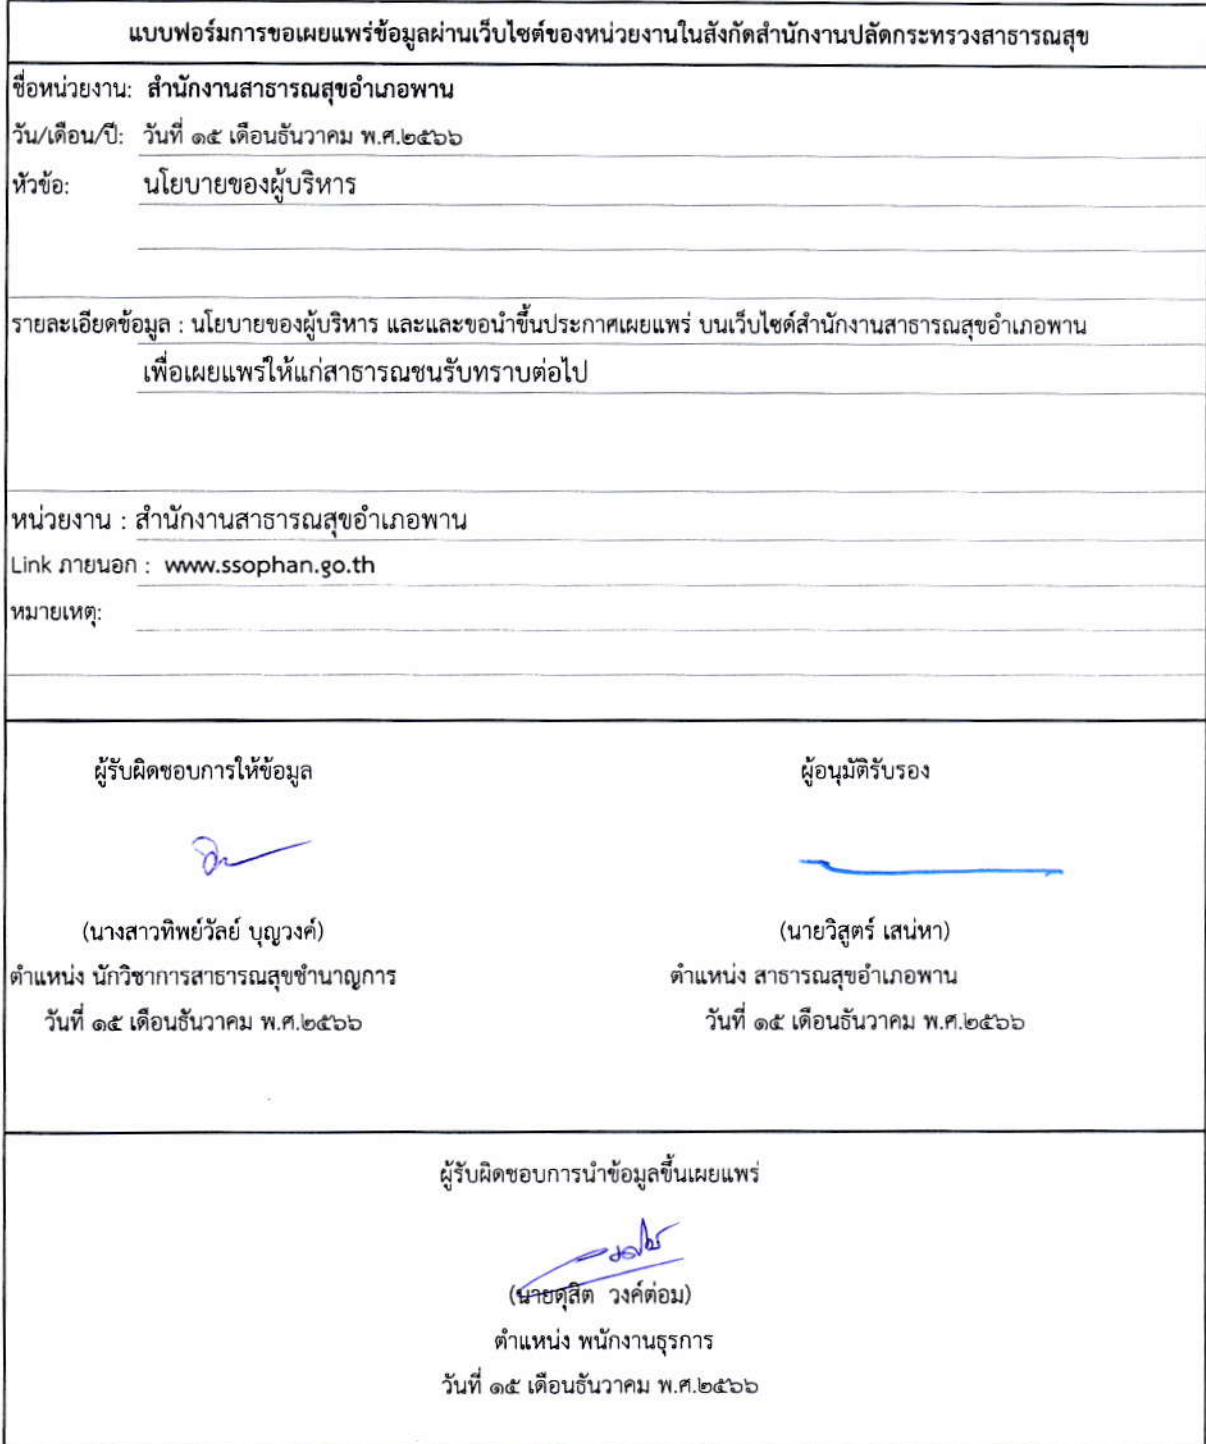 แบบฟอร์มการขอเผยแพร่ข้อมูลผ่านเว็บไซต์ของหน่วยงานในสังกัดสำนักงานปลัดกระทรวงสาธารณสุข
ชื่อหน่วยงาน: สำนักงานสาธารณสุขอำเภอพาน
วัน/เดือน/ปี: วันที่ ๑๕ เดือนธันวาคม พ.ศ.๒๕๖๖
หัวข้อ: นโยบายของผู้บริหาร
รายละเอียดข้อมูล : นโยบายของผู้บริหาร และและขอนำขึ้นประกาศเผยแพร่ บนเว็บไซด์สำนักงานสาธารณสุขอำเภอพาน
เพื่อเผยแพร่ให้แก่สาธารณชนรับทราบต่อไป
หน่วยงาน : สำนักงานสาธารณสุขอำเภอพาน
Link ภายนอก : www.ssophan.go.th
หมายเหตุ:
ผู้รับผิดชอบการให้ข้อมูล ผู้อนุมัติรับรอง
(นางสาวทิพย์วัลย์ บุญวงค์) (นายวิสูตร์ เสน่หา)
ตำแหน่ง นักวิชาการสาธารณสุขชำนาญการ ตำแหน่ง สาธารณสุขอำเภอพาน
วันที่ ๑๕ เดือนธันวาคม พ.ศ.๒๕๖๖ วันที่ ๑๕ เดือนธันวาคม พ.ศ.๒๕๖๖
ผู้รับผิดชอบการนำข้อมูลขึ้นเผยแพร่
(นายดุสิต วงค์ต่อม)
ตำแหน่ง พนักงานธุรการ
วันที่ ๑๕ เดือนธันวาคม พ.ศ.๒๕๖๖